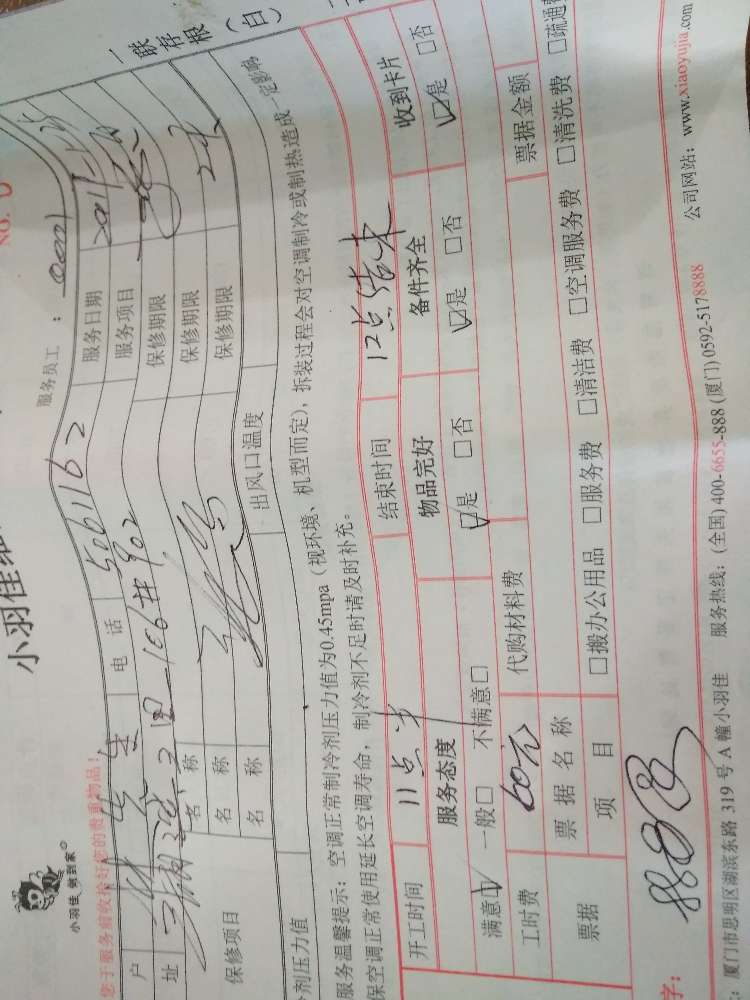 一联存根（白）
NO. 0
小羽佳
小羽佳 做到家
服务员工：0001
您于服务前收拾好您的贵重物品！
户 电话 5061162 服务日期
址 服务项目
名称 保修期限
保修项目 名称 保修期限
名称 保修期限
剂压力值 出风口温度
服务温馨提示：空调正常制冷剂压力值为0.45mpa（视环境、机型而定），拆装过程会对空调制冷或制热造成一定影响
保空调正常使用延长空调寿命，制冷剂不足时请及时补充。
开工时间 11点半 结束时间 12点结束
服务态度 物品完好 备件齐全 收到卡片
满意☑ 一般□ 不满意□ ☑是 □否 ☑是 □否 ☑是 □否
工时费 60元 代购材料费
票据 票据名称 票据金额
项目 □搬办公用品 □服务费 □清洁费 □空调服务费 □清洗费 □疏通费
字：
：厦门市思明区湖滨东路 319 号 A 幢小羽佳 服务热线：(全国) 400-6655-888 (厦门) 0592-5178888 公司网站：www.xiaoyujia.com